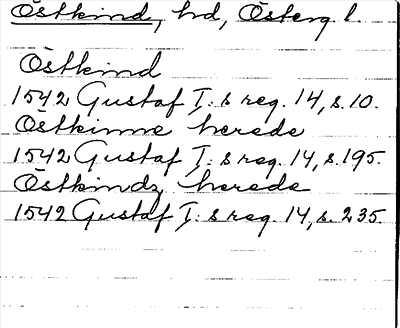 Östkind, hd, Österg. l.
Östkind
1542 Gustaf I:s reg. 14, s. 10.
Östkinne herede
1542 Gustaf I:s reg. 14, s. 195.
Östkindz herede
1542 Gustaf I:s reg. 14, s. 235.